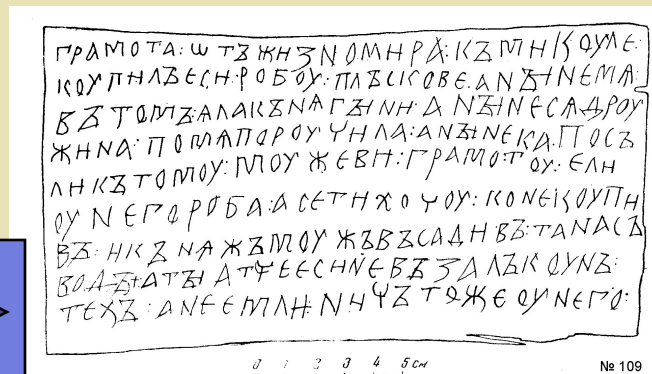 ГРАМОТА:ѠТЪЖИЗНОМИРА:КЪМИКОУЛЕ:
КОУПИЛЪЕСИ:РОБОУ:ПЛЪСКОВЕ:АНЫНЕМѦ:
ВЪТОМЪ:ѦЛАКЪНѦГЫНИ:АНЫНЕСѦДРОУ
ЖИНА:ПОМѦПОРОУЧИЛА:АНЫНЕКА:ПОСЪ
ЛИКЪТОМОУ:МОУЖЕВИ:ГРАМОТОУ:ЕЛИ
ОУНЕГОРОБА:АСЕТИХОЧОУ:КОНЕКОУПИ
ВЪ:ИКЪНѦЖЪМОУЖЪВЪСАДИВЪ:ТАНАСЪ
ВОДЫ:АТЫАТЧЕЕСИНЕВЪЗАЛЪКОУНЪ:
ТЕХЪ:АНЕЕМЛИ:НИЧЪТОЖЕОУНЕГО:
0 1 2 3 4 5 см
№ 109